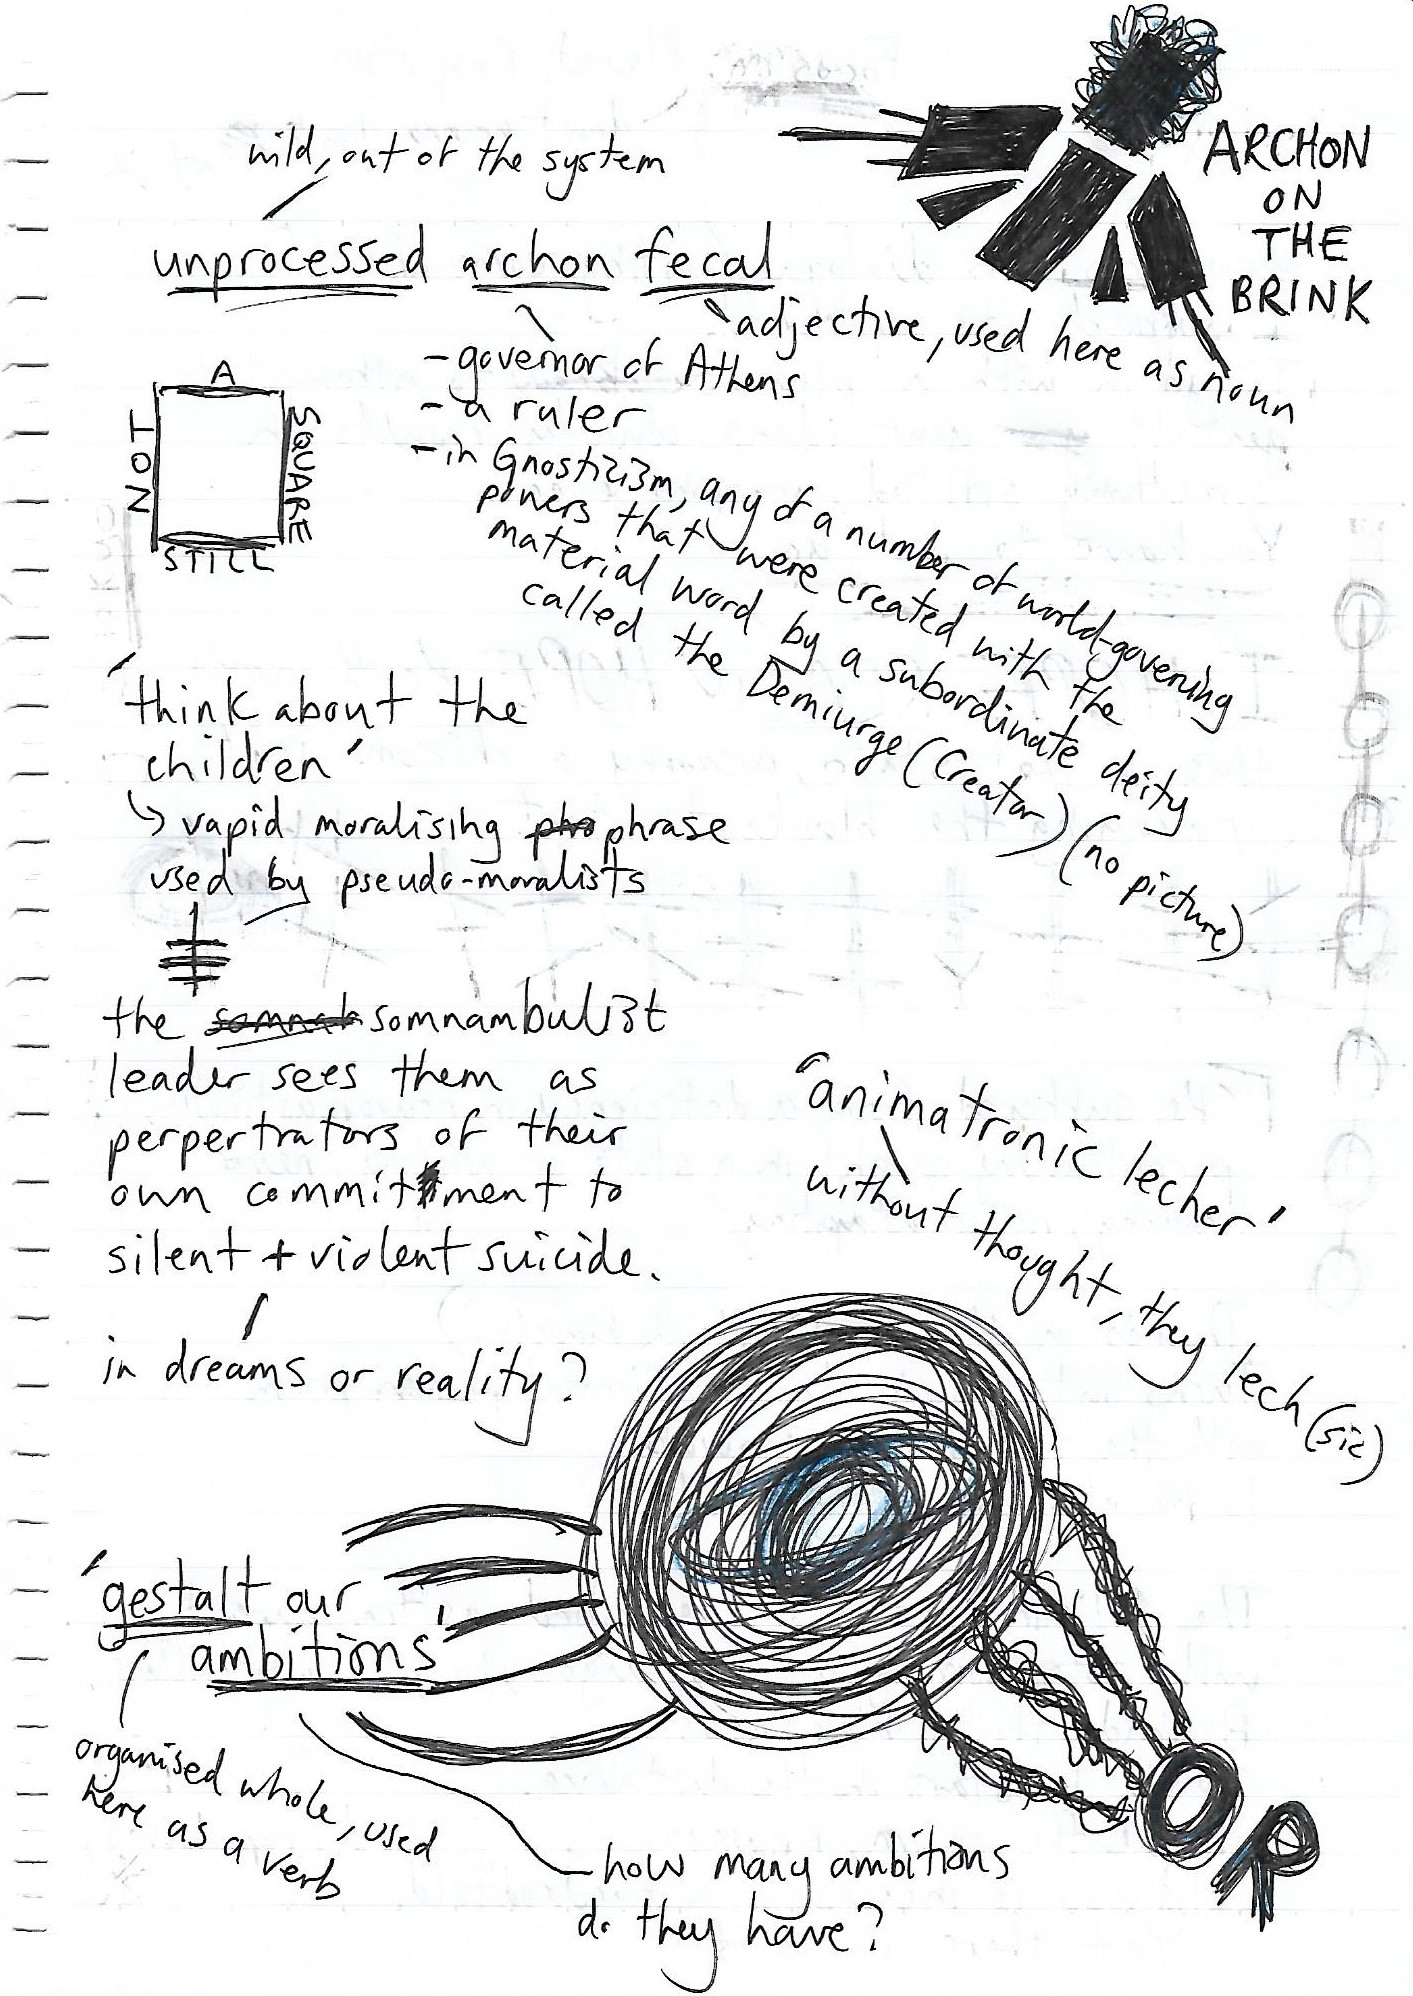 wild, out of the system
unprocessed archon fecal
ARCHON
ON
THE
BRINK
adjective, used here as noun
- governor of Athens
- a ruler
- in Gnosticism, any of a number of world-govening
powers that were created with the
material word by a subordinate deity
called the Demiurge (Creator) (no picture)
A
NOT
SQUARE
STILL
'think about the
children'
vapid moralising pho phrase
used by pseudo-moralists
the somnab somnambulist
leader sees them as
perpertrators of their
own commitment to
silent + violent suicide.
in dreams or reality?
'animatronic lecher'
without thought, they lech (sic)
'gestalt our
ambitions'
organised whole, used
here as a verb
how many ambitions
do they have?
OR